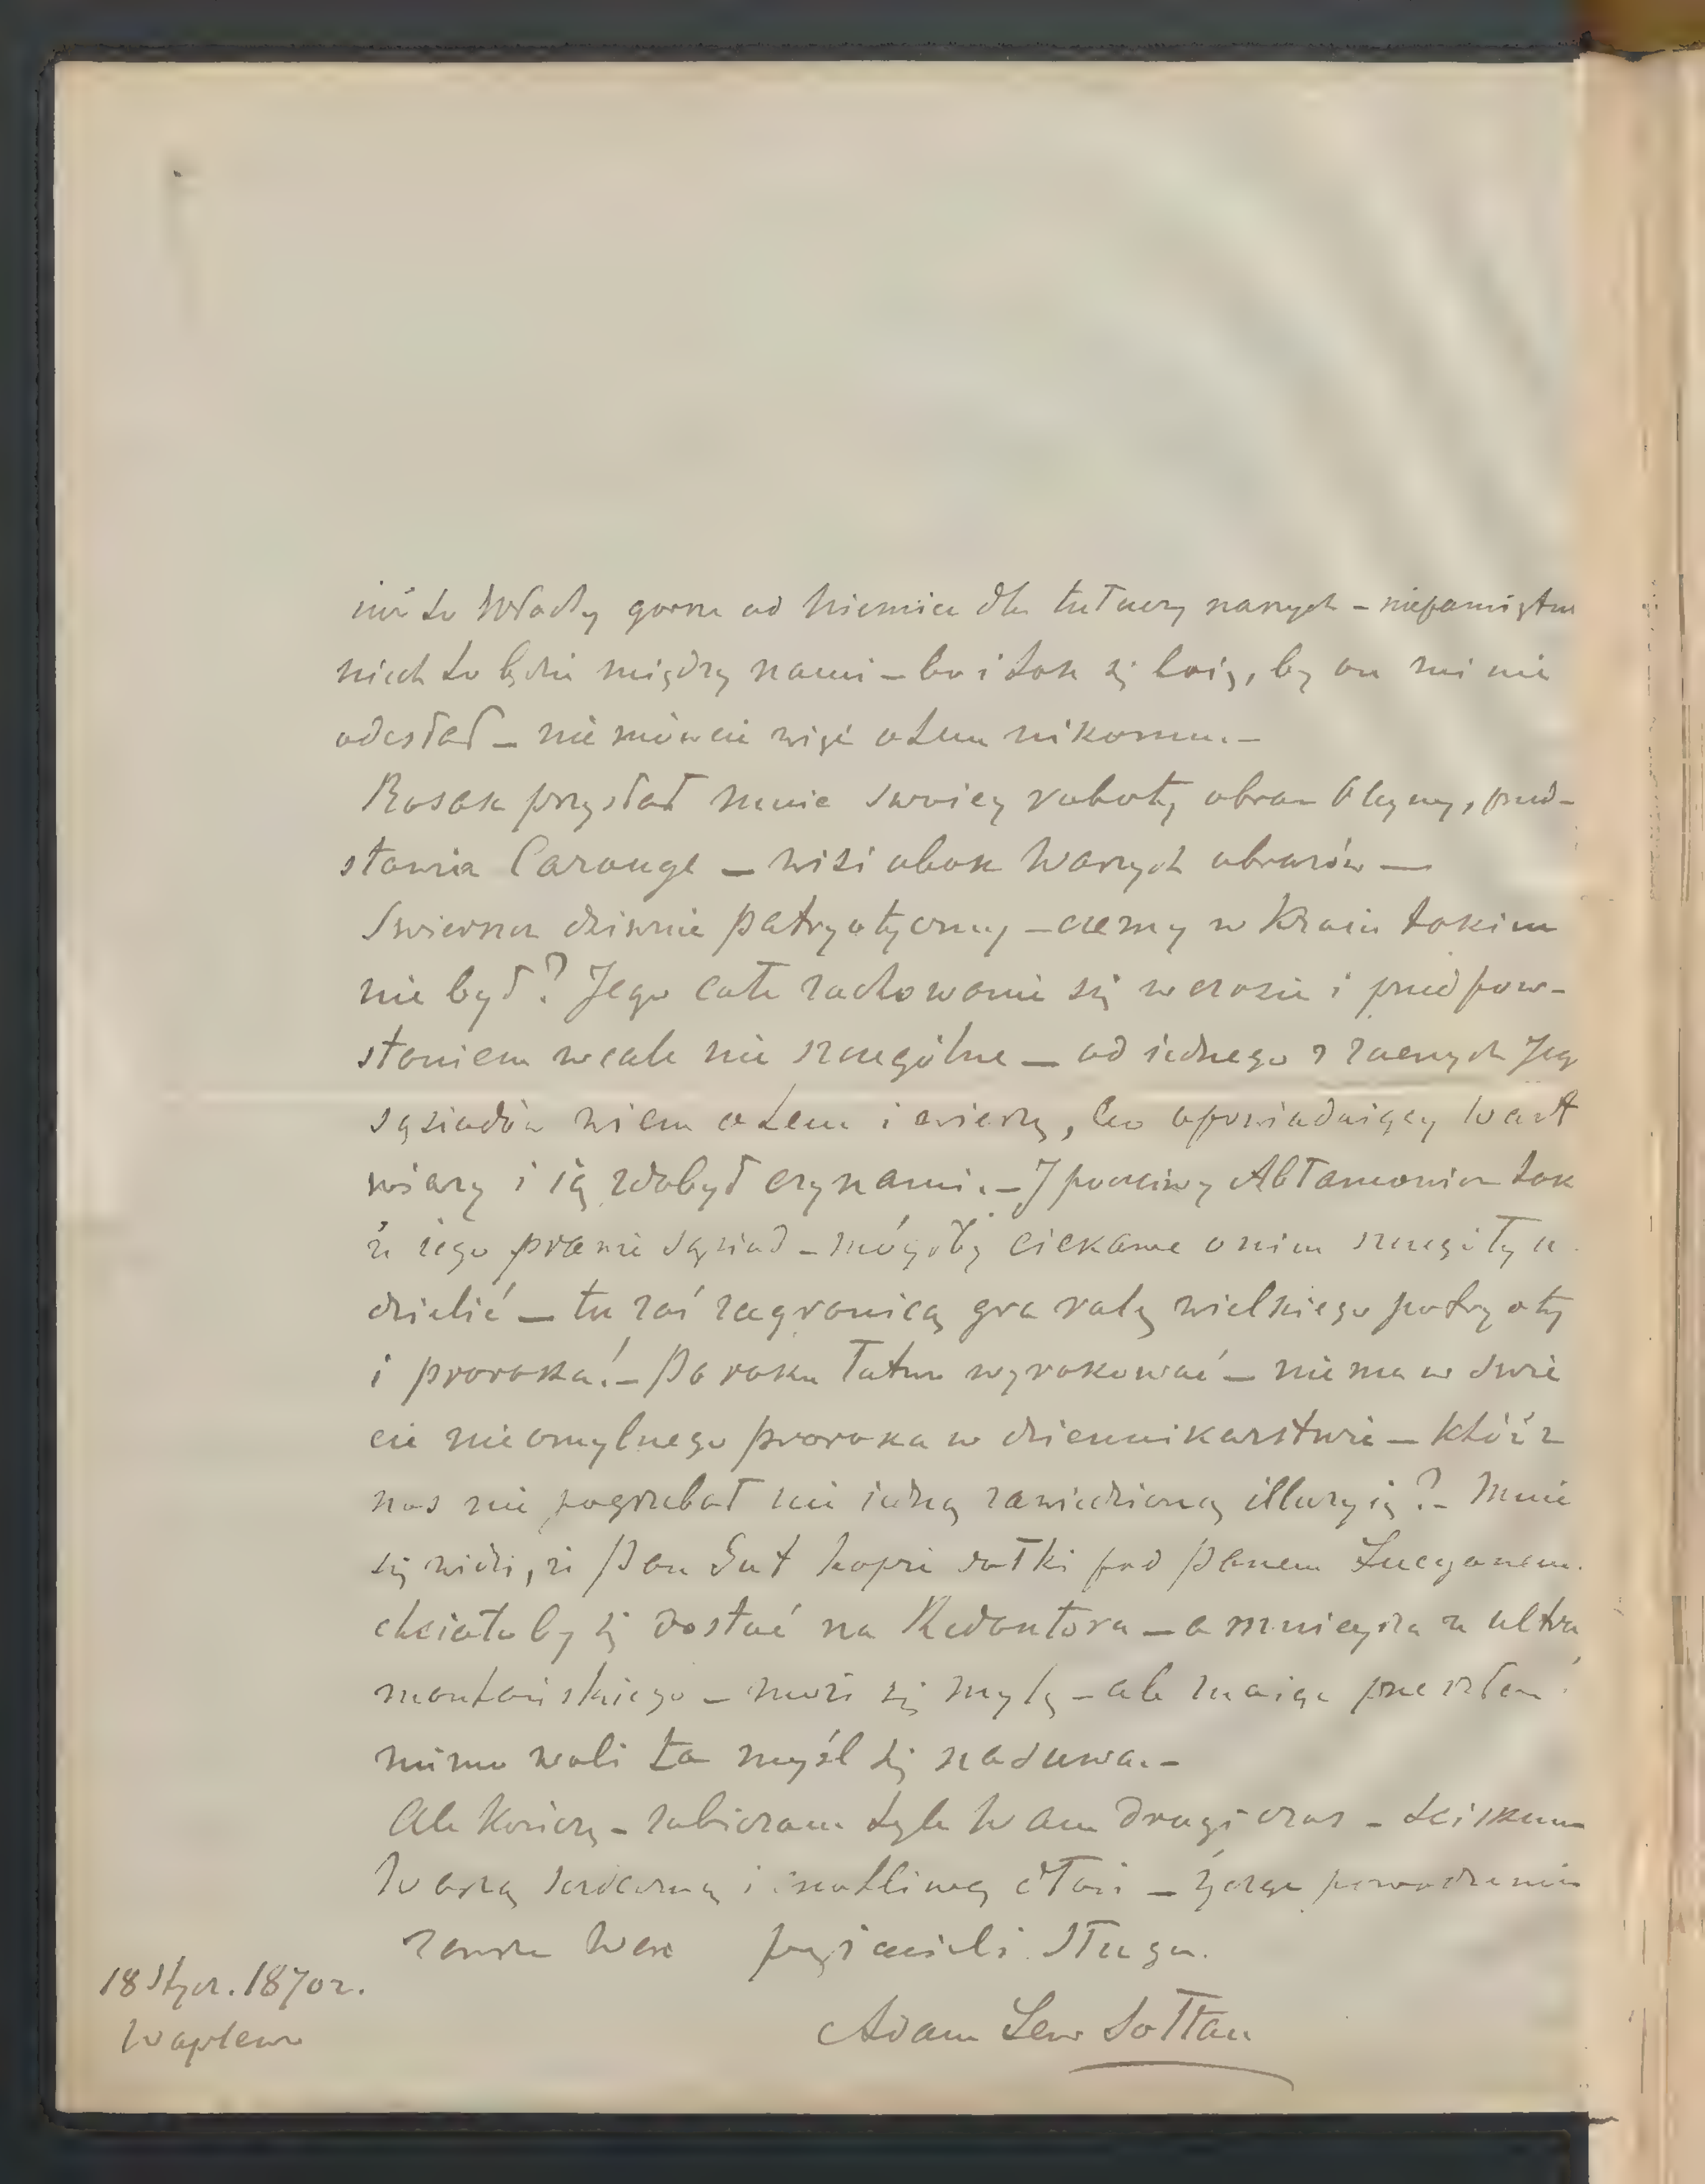 niech to będzie między nami – bo i tak się boię, by on mi nie
odesłał – nie mówcie więc o tem nikomu. –
Bosak przysłał mnie swoiey roboty obraz oleyny, przed-
stawia Carouge – wisi obok Waszych obrazów –
dziwnie patryotyczny – czemu w Kraiu takim
nie był? Jego całe zachowanie się w czasie i przed pow-
staniem wcale nie szczególne – od iednego z zacnych Jego
sąsiadów wiem o tem i wierzę, bo opowiadaiący wart
wiary i ią zdobył czynami. – I poczciwy Abłamowicz tak
że iego prawie sąsiad – mógłby ciekawe o nim szczegóły u
dzielić – tu zaś zagranicą gra rolę wielkiego patryoty
i proroka! – Po roku łatwo wyrokować – nie ma w świe
cie nieomylnego proroka w dziennikarstwie – któż z
nas nie pogrzebał nie iedną zawiedzioną illuzyią? – Mnie
się widzi, że Pan Gut kopie dołki pod Panem Lucyanem.
chciałoby się dostać na Redaktora – a mnieysza że ultra
montańskiego – może się mylę – ale znaiąc przeszłość
mimo woli ta myśl się nasuwa. –
Ale kończę – zabieram tyle Wam drogi czas – ściskam
Waszą serdeczną i dłoń – życzę powodzenia
zawsze Wasz przyjaciel i sługa.
Adam Lew Sołtan
18 Stycz. 1870 r.
Waplewo